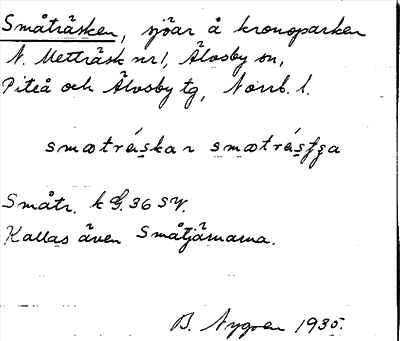 Småträsken, sjöar å kronoparken
N. Metträsk nr 1, Älvsby sn,
Piteå och Älvsby tg, Norrb. l.
Småtr. k G. 36 SV.
Kallas även Småtjärnarna.
B. Nygren 1935.